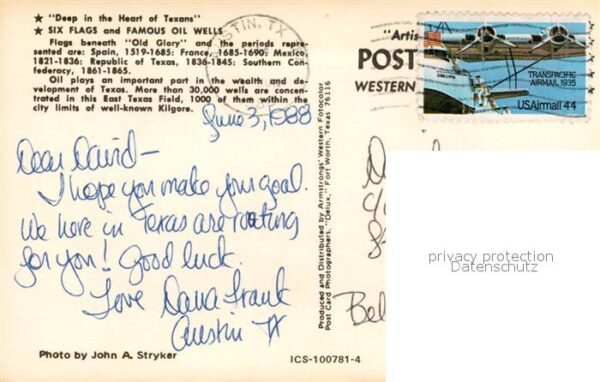 ★ "Deep in the Heart of Texans"
★ SIX FLAGS and FAMOUS OIL WELLS
Flags beneath "Old Glory" and the periods repre-
sented are: Spain, 1519-1685: France, 1685-1690; Mexico,
1821-1836: Republic of Texas, 1836-1845: Southern Con-
federacy, 1861-1865.
Oil plays an important part in the wealth and de-
velopment of Texas. More than 30,000 wells are concen-
trated in this East Texas Field, 1000 of them within the
city limits of well-known Kilgore.
June 3, 1988
Dear David-
I hope you make your goal.
We here in Texas are rooting
for you! Good luck.
Love Dana Frank
Austin TX
Photo by John A. Stryker
ICS-100781-4
Produced and Distributed by Armstrongs' Western Fotocolor
Post Card Photographers, "Delux," Fort Worth, Texas 76116
AUSTIN, TX
"Artis
POST
WESTERN
TRANSPACIFIC
AIRMAIL 1935
USAirmail 44
D
c/
Bel
privacy protection
Datenschutz